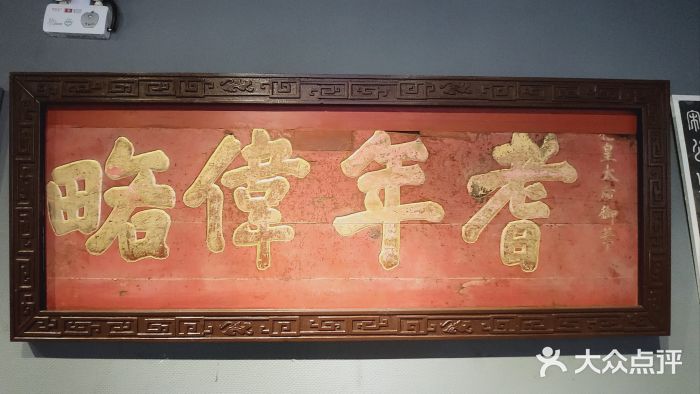 皇太后御筆
耆年偉略
大众点评